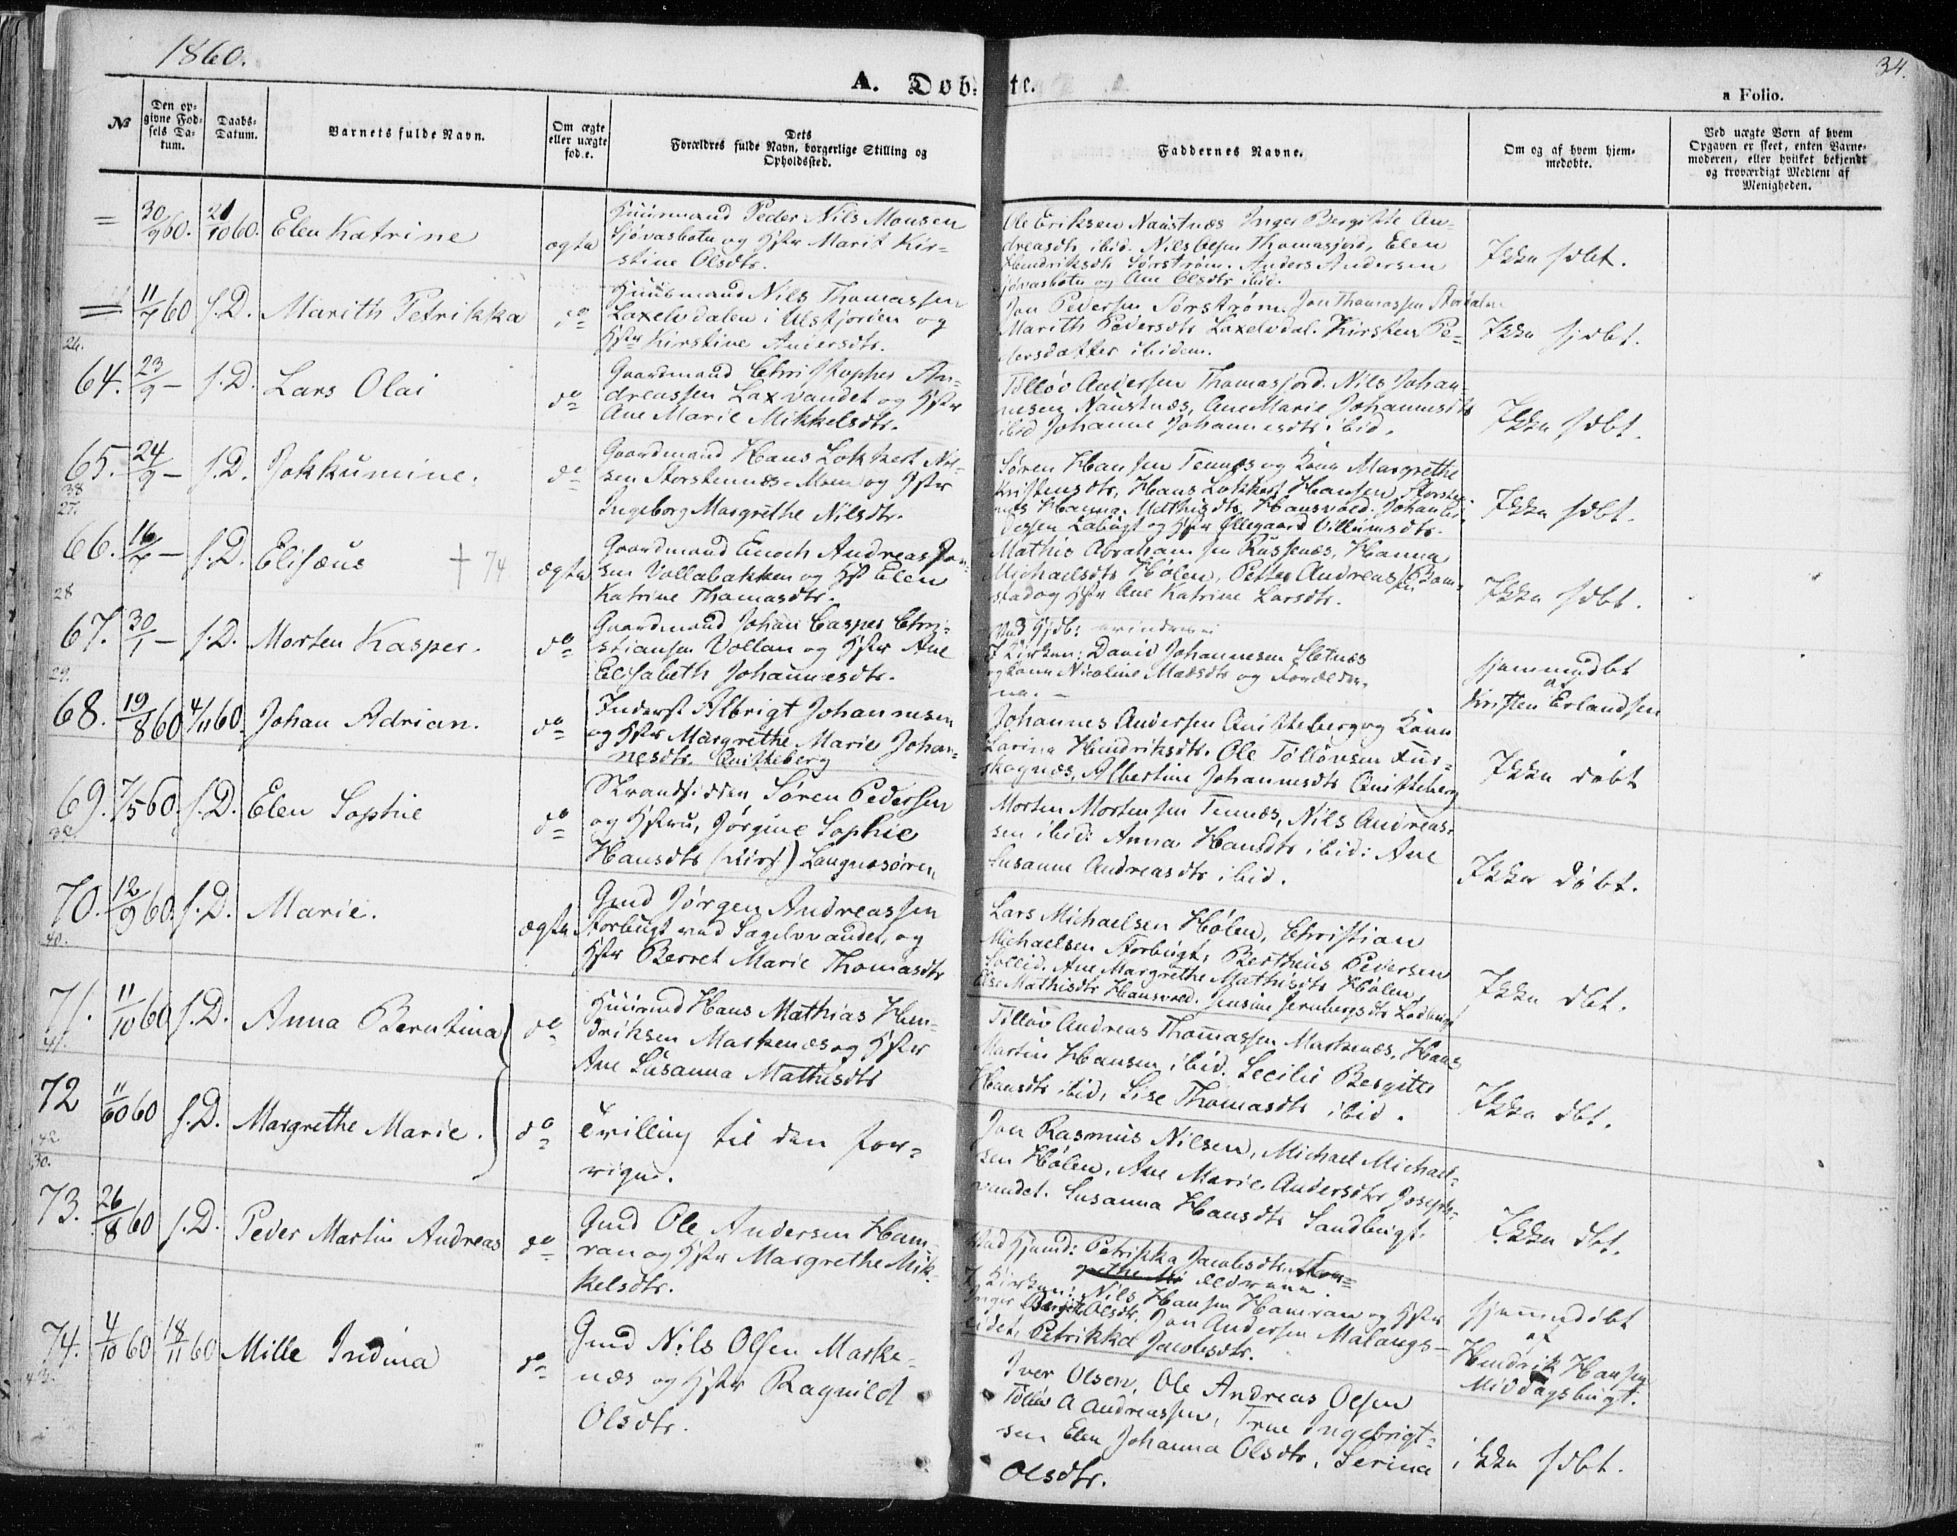 1860.
34.
A. Døbte.
a Folio.
№
Den opgivne Fødsels Datum.
Daabs-Datum.
Barnets fulde Navn.
Om ægte eller uægte fød.e.
Dets Forældres fulde Navn, borgerlige Stilling og Opholdssted.
Faddernes Navne.
Om og af hvem hjemmedøbte.
Ved uægte Børn af hvem Opgaven er skeet, enten Barnemoderen, eller hvilket bekjendt og troværdigt Medlem af Menigheden.
=
30/9 60.
21/10 60.
Elen Katrine
ægte
Huusmand Peder Nils Monsen
Sjøvasbotn og Hstr Marit Kir-
stine Olsdtr.
Ole Eriksen Naustnæs Inger Bergitte An-
dreasdtr ibid. Nils Olsen Thomasjord, Elen
Hendriksdtr Sørstrøm. Anders Andersen
Sjøvasbotn og Ane Olsdtr ibid.
Ikke hdbt.
=
11/7 60
s. D.
Marith Petrikka
do
Huusmand Nils Thomassen
Laxelvdalen i Ulsfjorden og
Hstr Kirstine Andersdtr.
Jon Pedersen Sørstrøm. Jon Thomassen Stordalen
Marith Pedersdtr Laxelvdal. Kirsten Pe-
dersdatter ibidem.
Ikke hjdbt.
26.
64.
23/9 -
s. D.
Lars Olai
do
Gaardmand Christopher An-
dreassen Laxvandet og Hstr
Ane Marie Mikkelsdtr.
Tølløv Andersen Thomasjord. Nils Johan-
nesen Naustnæs, Ane Marie Johannesdtr
ibid Johanne Johannesdtr ibid.
Ikke hdbt.
65.
24/9 -
s. D.
Jokkumine.
do
Gaardmand Hans Løkkert Nil-
sen Storstennæs-Moen og Hstr
Ingeborg Margrethe Nilsdtr.
Søren Hansen Tennæs og Kone Margrethe
Kristensdtr, Hans Løkkert Hansen, Storsten-
næs Hanna Mathisdtr Hansvold. Johan
og Hstr Ollegaard Villumsdtr.
Ikke hdbt.
38
27.
66.
s. D.
Elisæus
† 74
ægte
Gaardmand Enoch Andreas Jon-
sen Vollabakken og Hst Elen
Katrine Thomasdtr.
Mathis Abrahamsen Russenæs, Hanna
Michaelsdtr Hølen, Petter Andreassen Bom-
stad og Hstr Ane Katrine Larsdtr.
Ikke hdbt.
28
67.
30/1 -
s. D.
Morten Kasper.
do
Gaardmand Johan Casper Chri-
stiansen Vollan og Hstr Ane
Elisabeth Johannesdtr.
Ved Hjdb:
I Kirken: David Johannesen Sletnæs
og Kone Nicoline Madsdtr og Forældre-
ne. -
hjemmedbt
af
Kristen Erlandsen
29.
68.
19/8 60
4/11 60.
Johan Adrian.
do
Inderst Albrigt Johannesen
og Hstr Margrethe Marie Johan-
nesdtr. Qvitteberg
Johannes Andersen Qvitteberg og Kone
Karina Hendriksdtr. Ole Tølløvsen Fur-
skognæs, Albertine Johannesdtr Qvitteberg
Ikke døbt
69.
7/5 60.
s. D.
Elen Sophie
do
Strandsidder Søren Pedersen
og Hstru, Jørgine Sophie
Hansdtr Langnæsøren
Morten Mortensen Tennæs, Nils Andreas-
sen ibid: Anna Hansdtr ibid: Ane
Susanne Andreasdtr ibid.
Ikke døbt.
39
70.
12/9 60.
s. D.
Marie.
ægte
Gmd Jørgen Andreassen
Storbugt ved Sagelvvandet, og
Hstr Berret Marie Thomasdtr
Lars Michaelsen Hølen, Christian
Michaelsen Storbugt, Bertheus Pedersen
Sollid. Ane Margrethe Mathisdtr Hølen,
Else Mathisdtr Hansvold.
Ikke dbt.
40.
71.
11/10 60
s. D.
Anna Berntina
do
Huusmd Hans Mathias Hen-
driksen Markenæs og Hstr
Ane Susanna Mathisdtr
Tølløv Andreas Thomassen Markenæs, Hans
Martin Hansen ibid. Secilie Bergitte
Hansdtr ibid, Lise Thomasdtr ibid.
Ikke dbt.
41.
72
11/10 60
s. D.
Margrethe Marie.
do
Tvilling til den for-
rige.
Jon Rasmus Nilsen, Michael Michael-
sen Hølen, Ane Marie Andersdtr Joseph-
vandet. Susanna Hansdtr Sandbugt.
Ikke dbt.
42
30.
73.
26/8 60
s. D.
Peder Martin Andreas
do
Gmd Ole Andersen Ham-
ran og Hstr Margrethe Mik-
kelsdtr.
Ved Hjemd: Petrikka Jacobsdtr
I Kirken: Nils Hansen Hamran og Hstr
Inger Bergitte Olsdtr. Jon Andersen Malangs-
eidet, Petrikka Jacobsdtr.
hjemmdøbt
af
Hendrik Hansen
Middagsbugt.
74.
4/10 60
18/11 60
Mille Indina
do
Gmd Nils Olsen Marke-
næs og Hstr Ragnild
Olsdtr.
Iver Olsen, Ole Andreas Olsen
Tølløv A Andreassen, Trne Ingebrigt-
sen Elen Johanna Olsdtr, Serina
Olsdtr.
ikke hdbt.